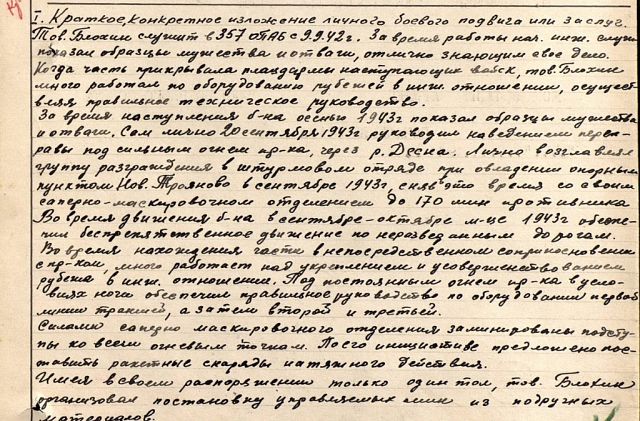 I. Краткое, конкретное изложение личного боевого подвига или заслуг.
Тов. Блохин служит в 357 ОПАБ с 9.9.42г. За время работы нач. инж. служ
показал образцы мужества и отваги, отлично знающим свое дело.
Когда часть прикрывала плацдармы наступающих войск, тов. Блохин
много работал по оборудованию рубежей в инж. отношении, осущест
вляя правильное техническое руководство.
За время наступления б-на осенью 1943г показал образцы мужества
и отваги. Сам лично 20 сентября 1943г руководил наведением пере-
равы под сильным огнем пр-ка, через р. Десна. Лично возглавлял
группу разграждения в штурмовом отряде при овладении опорным
пунктом Нов. Трояново в сентябре 1943г, сняв в это время со своим
саперно-маскировочном отделением до 170 мин противника
Во время движения б-на в сентябре-октябре м-це 1943г обеспе-
чил беспрепятственное движение по неразведанным дорогам.
Во время нахождения части в непосредственном соприкосновении
с пр-ком, много работает над укреплением и усовершенствованием
рубежа в инж. отношении. Под постоянным огнем пр-ка в усло-
виях ночи обеспечил правильное руководство по оборудованию первой
линии траншей, а затем второй и третьей.
Силами саперно маскировочного отделения заминированы подсту-
пы ко всем огневым точкам. По его инициативе предложено пос-
тавить ракетные снаряды натяжного действия.
Имея в своем распоряжении только один тол, тов. Блохин
организовал постановку управляемых мин из подручных
материалов.